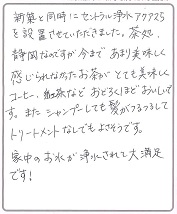 新築と同時にセントラル浄水アクア25
を設置させていただきました。茶処、
静岡なのですが今まであまり美味しく
感じられなかったお茶がとても美味しく
コーヒー、紅茶など おどろくほどおいしいで
す。また シャンプーしても髪がつるつるして
トリートメントなしでもよさそうです。
家中のお水が浄水されて大満足
です！